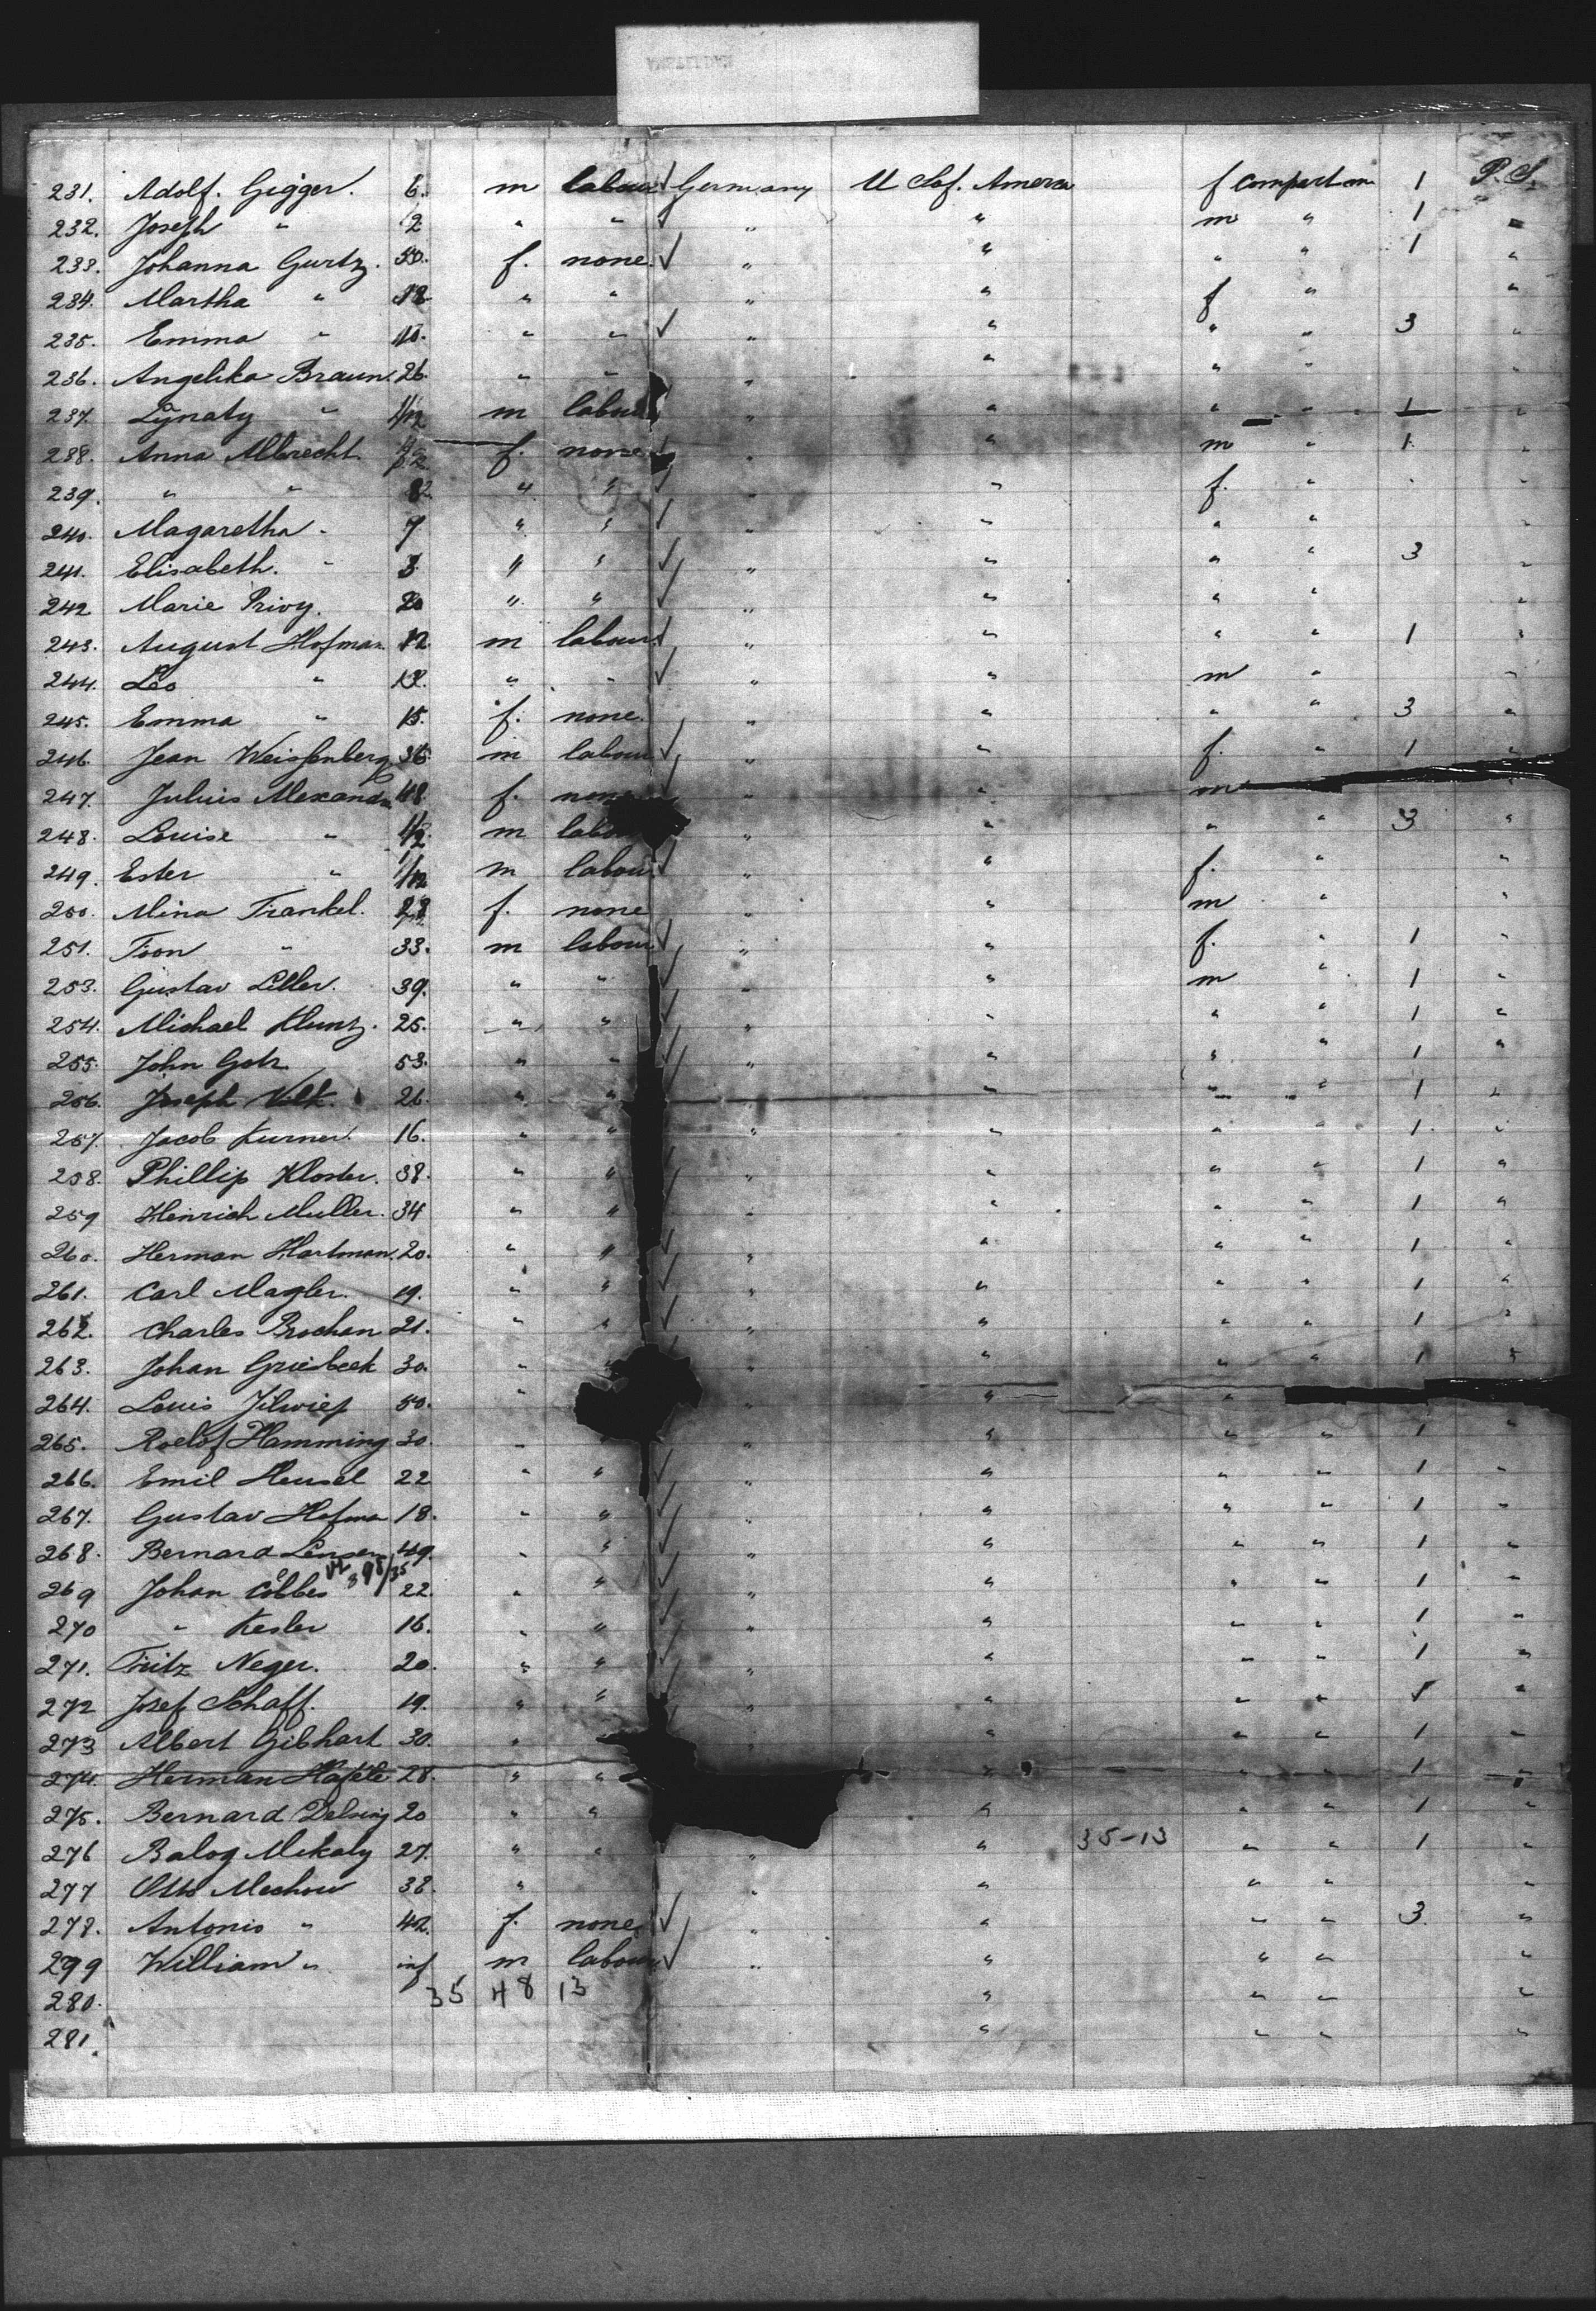 231. Adolf. Gigger. 6. m labour Germany U S of. America f Compartm 1 P. S.
232. Joseph " 2 " " " " m " 1 "
233. Johanna Gurtz. 50. f. none. " " " " 1 "
234. Martha " 12 " " " " f " "
235. Emma " 10. " " " " " " 3 "
236. Angelika Braun. 26. " " " " " " "
237. Lynaty " 1/12 m labour " " " " 1 "
238. Anna Albrecht. f. none " " m " 1 "
239. " " " " " " f. " "
240. Magaretha " 7 " " " " " " "
241. Elisabeth. " 3. " " " " " " 3 "
242 Marie Privy. 20 " " " " " " "
243. August Hofman. 12. m labour " " " " 1 "
244. Leo " 12. " " " " m " "
245. Emma " 15. f. none. " " " " 3 "
246. Jean Weissenberg 36 m labour " " f. " 1 "
247. Juluis Alexander 48. f. none " " m "
248. Louise " m labour " " " " 3 "
249. Ester " 1/12 m labour " " f. " "
250. Mina Frankel. 28 f. none " " m " "
251. Toon " 33. m labour " " f. " 1 "
253. Gustav Leller. 39. " " " " m " 1 "
254. Michael Kluntz. 25. " " " " " " 1 "
255. John Gotz 53. " " " " " " 1 "
256. Joseph Vilk. 26. " " " " " " 1 "
257. Jacob Kurner. 16. " " " " " " 1 "
258. Phillip Kloster. 38. " " " " " " 1 "
259 Henrich Muller. 34 " " " " " " 1 "
260. Herman Hartman. 20. " " " " " " 1 "
261. Carl Magler. 19. " " " " " " 1 "
262. Charles Brochan 21. " " " " " " 1 "
263. Johan Griesbeek 30. " " " " " " 1 "
264. Louis 50. " " " "
265. Roelof Hamming 30. " " " " " 1 "
266. Emil Hensel 22 " " " " " " 1 "
267. Gustav Hofman 18. " " " " " " 1 "
268. Bernard Lensen 49. " " " " " " 1 "
269 Johan Cobbes 22. " " " " " " 1 "
270 " Kesler 16. " " " " " " 1 "
271. Fritz Neger. 20. " " " " " " 1 "
272 Josef Schaff. 19. " " " " " " 1 "
273 Albert Gibhart 30. " " " " " " 1 "
274. Herman Hafele 28. " " " " " 1 "
275. Bernard Delsing 20 " " " " " 1 "
276 Balog Mekaly 27. " " " " 35-13 " " 1 "
277 Otto Mechow 38. " " " " " "
278. Antonio " 42. f. none " " " " 3. "
299 William " inf m labour " " " " "
280. 35 48 13 " " " "
281. " " " "